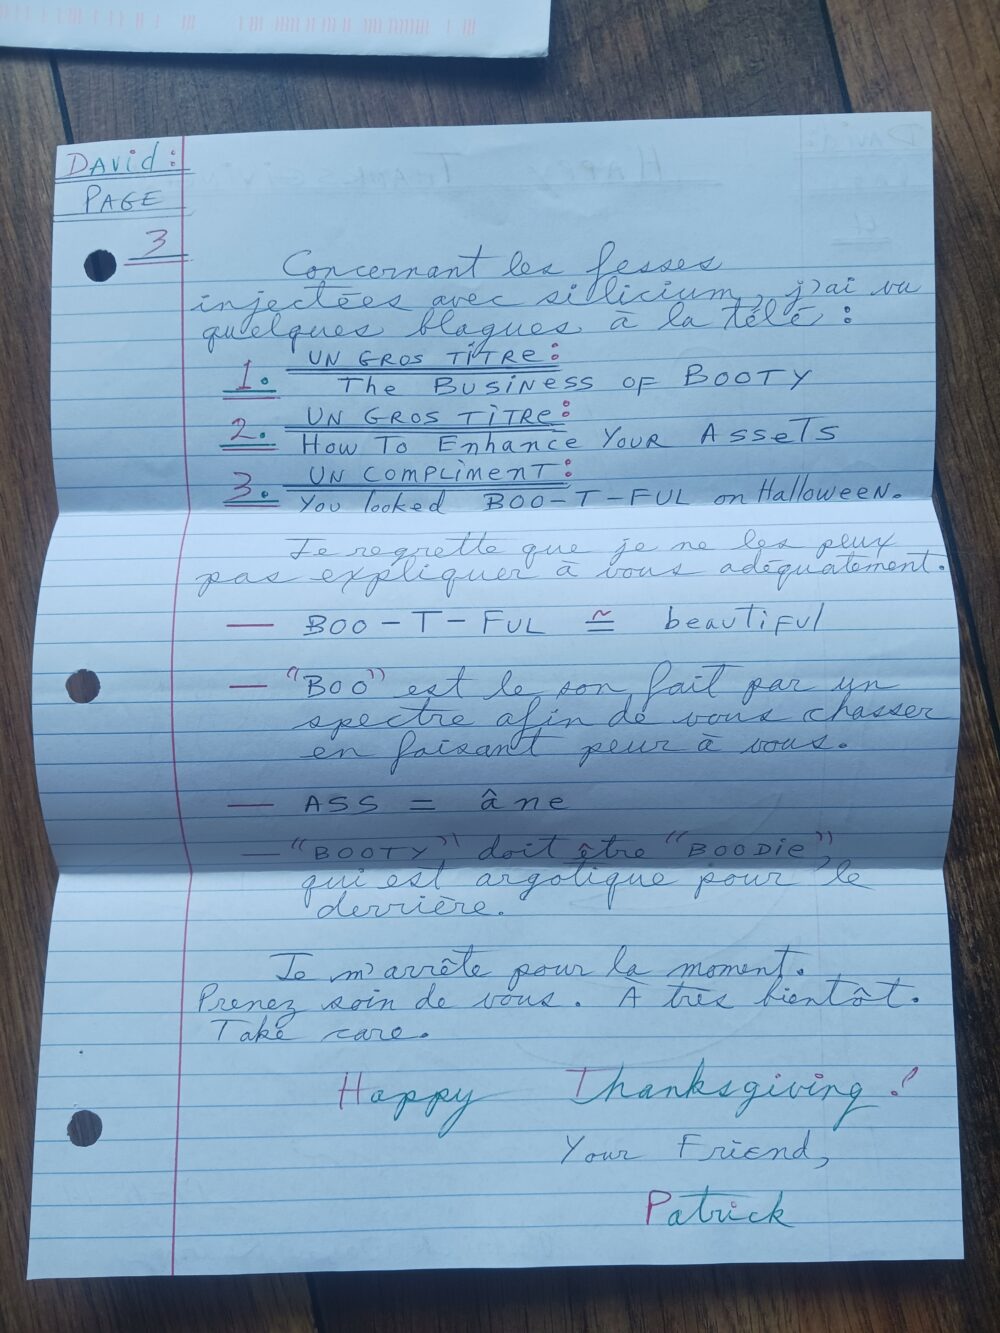 David:
PAGE
3
Concernant les fesses
injectées avec silicium, j'ai vu
quelques blagues à la télé :
1. UN GROS TITRE:
The BUSINESS OF BOOTY
2. UN GROS TITRE:
How To Enhance YOUR ASSETS
3. UN COMPLIMENT:
You looked BOO-T-FUL on Halloween.
Je regrette que je ne les peux
pas expliquer à vous adéquatement.
— BOO-T-FUL ≅ beautiful
— "BOO" est le son fait par un
spectre afin de vous chasser
en faisant peur à vous.
— ASS = âne
— "BOOTY" doit être "BOODIE",
qui est argotique pour le
derrière.
Je m'arrête pour la moment.
Prenez soin de vous. À très bientôt.
Take care.
Happy Thanksgiving!
Your Friend,
Patrick